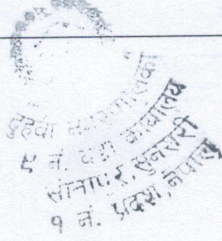 दुहवी नगरपालिका
९ नं. वडा कार्यालय
सोनापुर, सुनसरी
१ नं. प्रदेश, नेपाल